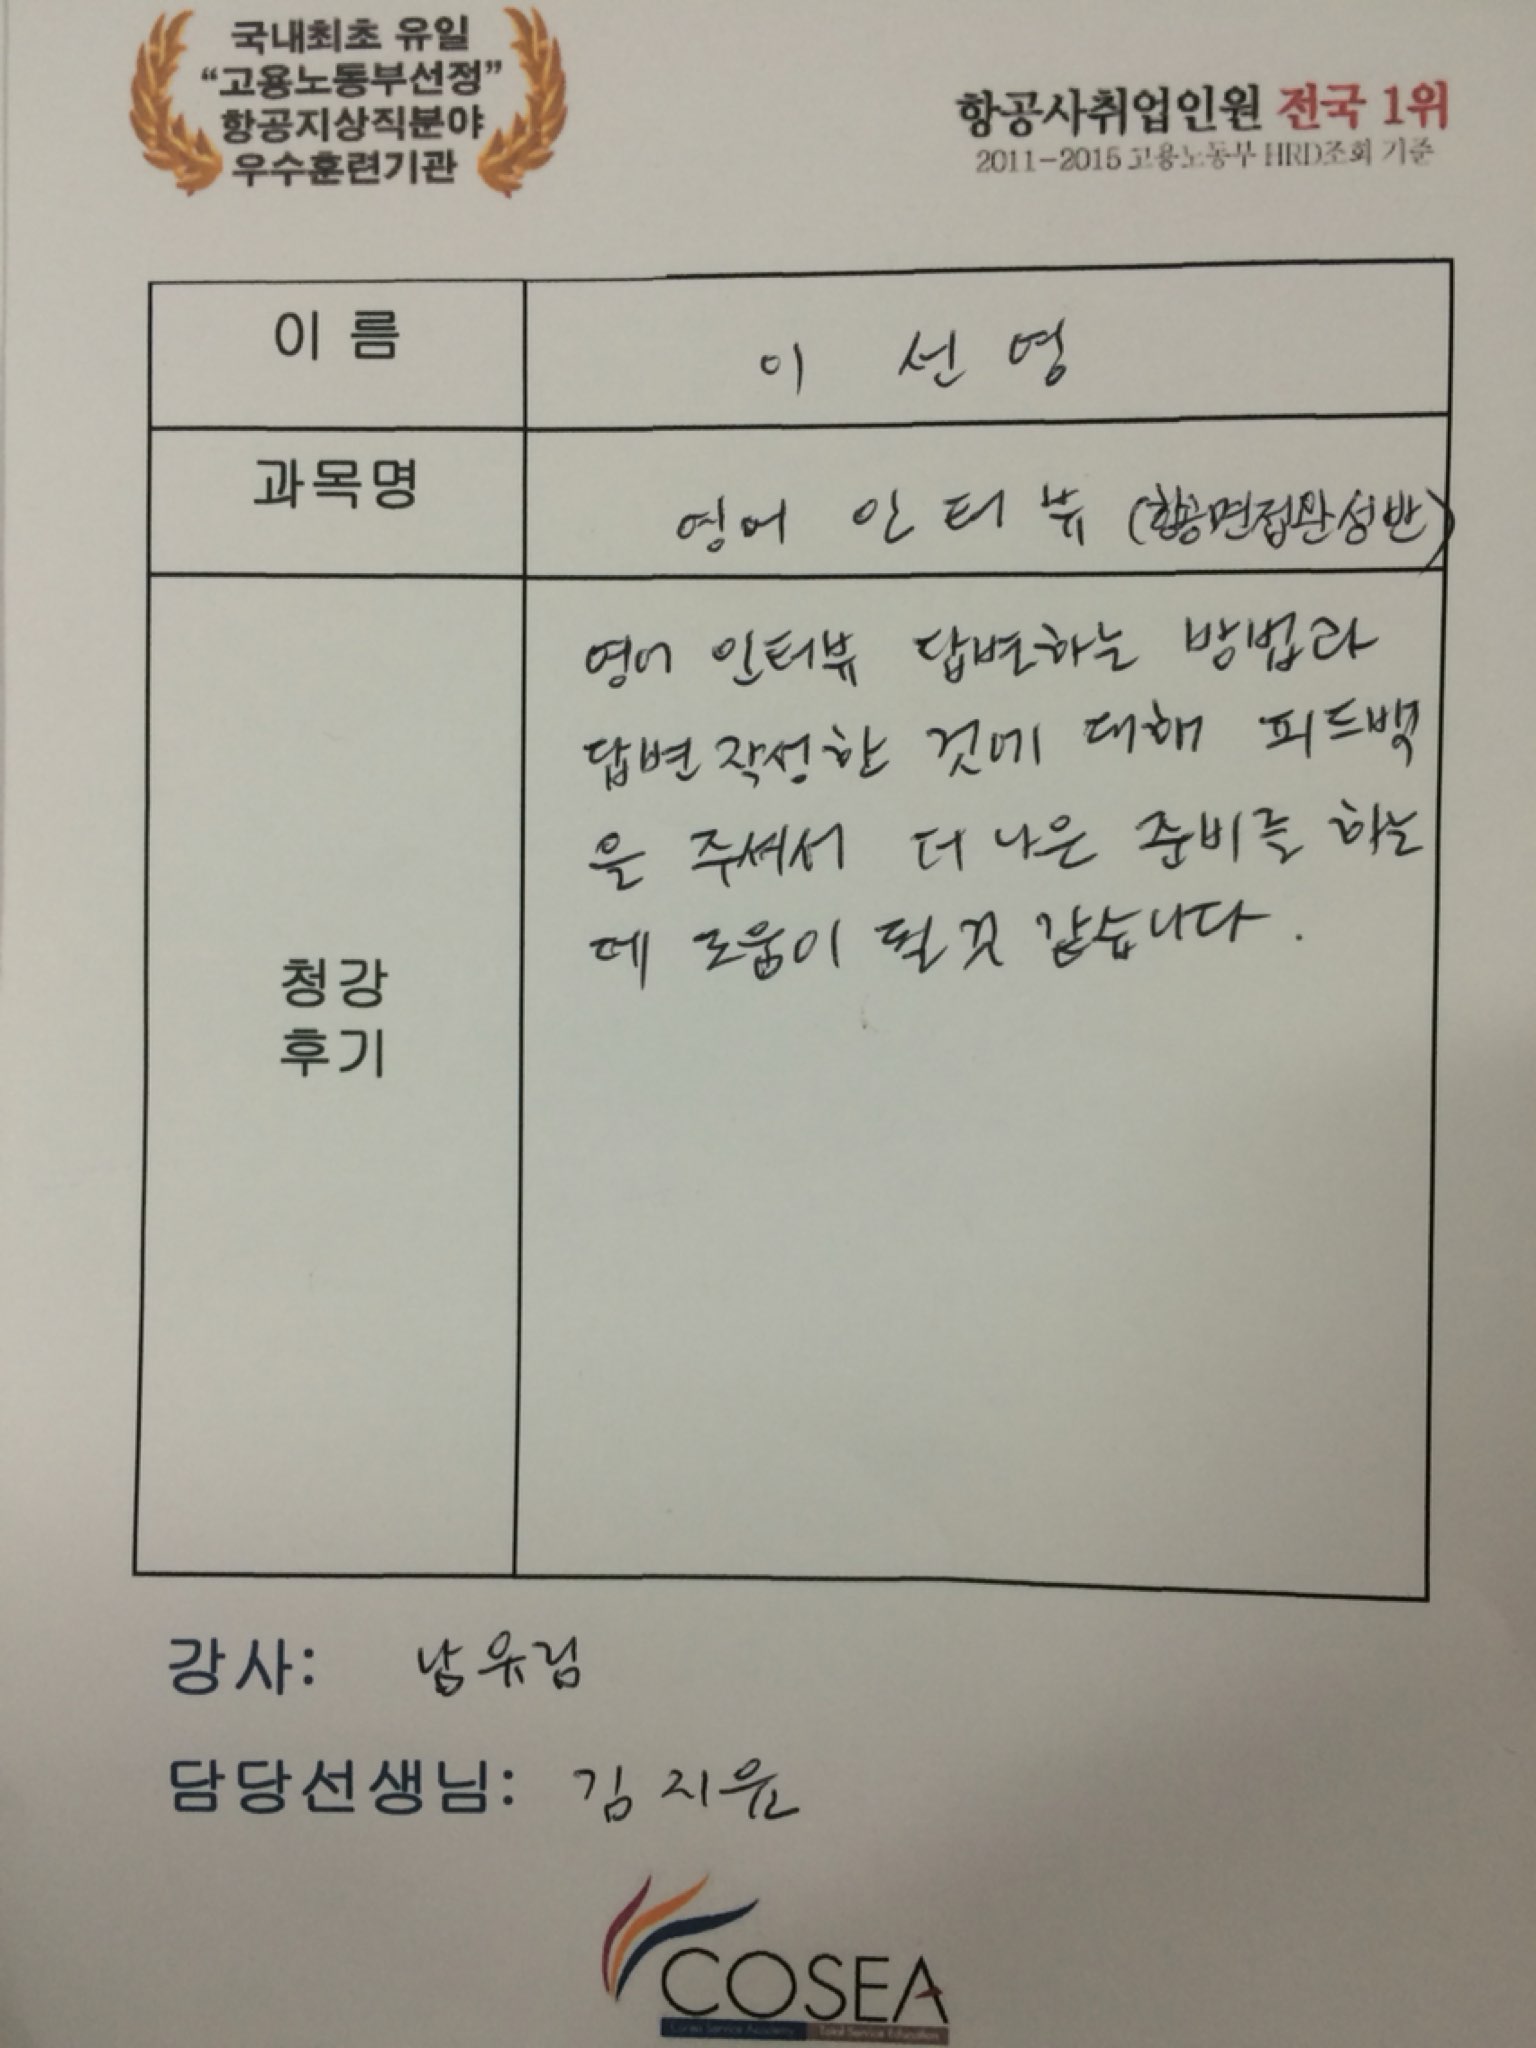 국내최초 유일
“고용노동부선정”
항공지상직분야
우수훈련기관
항공사취업인원 전국 1위
2011-2015 고용노동부 HRD조회 기준
이 름
이 선 영
과목명
영어 인터뷰 (항공면접완성반)
청강
후기
영어 인터뷰 답변하는 방법과
답변작성한 것에 대해 피드백
을 주셔서 더 나은 준비를 하는
데 도움이 될 것 같습니다.
강사: 남유림
담당선생님: 김지윤
COSEA
Korea Service Academy Total Service Education